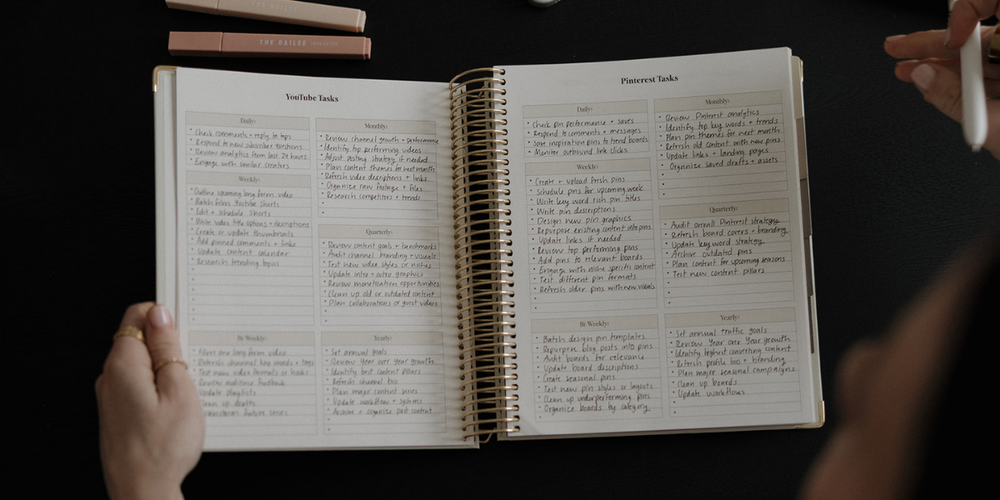 THE DAILEE
THE DAILEE
YouTube Tasks
Daily:
Check comments + reply to tops
Respond to new subscriber questions
Review analytics from last 24 hours
Engage with similar creators
Weekly:
Outline upcoming long form video
Batch film Youtube Shorts
Edit + schedule shorts
Write video title options + descriptions
Create or update thumbnails
Add pinned comments + links
Update content calendar
Research trending topics
Bi-Weekly:
long form video
Refresh channel key words + tags
Test new video formats or hooks
Review audience feedback
Update playlists
Clean up drafts
Brainstorm future series
Monthly:
Review channel growth + performance
Identify top performing videos
Adjust posting strategy if needed
Plan content themes for next month
Refresh video descriptions + links
Organize raw footage + files
Research competitors + trends
Quarterly:
Review content goals + benchmarks
Audit channel branding + visuals
Test new video styles or niches
Update intro + outro graphics
Review monetization opportunities
Clean up old or outdated content
Plan collaborations or guest videos
Yearly:
Set annual goals
Review year over year growth
Identify best content pillars
Refresh channel bio
Plan major content series
Update workflow + systems
Archive + organize past content
Pinterest Tasks
Daily:
Check pin performance + saves
Respond to comments + messages
Save inspiration pins to trend boards
Monitor outbound link clicks
Weekly:
Create + upload fresh pins
Schedule pins for upcoming week
Write key word rich pin titles
Write pin descriptions
Design new pin graphics
Repurpose existing content into pins
Update links if needed
Review top performing pins
Add pins to relevant boards
Engage with niche specific content
Test different pin formats
Refresh older pins with new visuals
Bi-Weekly:
Batch design pin templates
Repurpose blog posts into pins
Audit boards for relevance
Update board descriptions
Create seasonal pins
Test new pin styles or layouts
Clean up underperforming pins
Organize boards by category
Monthly:
Review Pinterest analytics
Identify top key words + trends
Plan pin themes for next month
Refresh old content with new pins
Update links + landing pages
Organize saved drafts + assets
Quarterly:
Audit overall Pinterest strategy
Refresh board covers + branding
Update key word strategy
Archive outdated pins
Plan content for upcoming seasons
Test new content pillars
Yearly:
Set annual traffic goals
Review Year over Year growth
Identify highest converting content
Refresh profile bio + branding
Plan major seasonal campaigns
Clean up boards
Update workflows